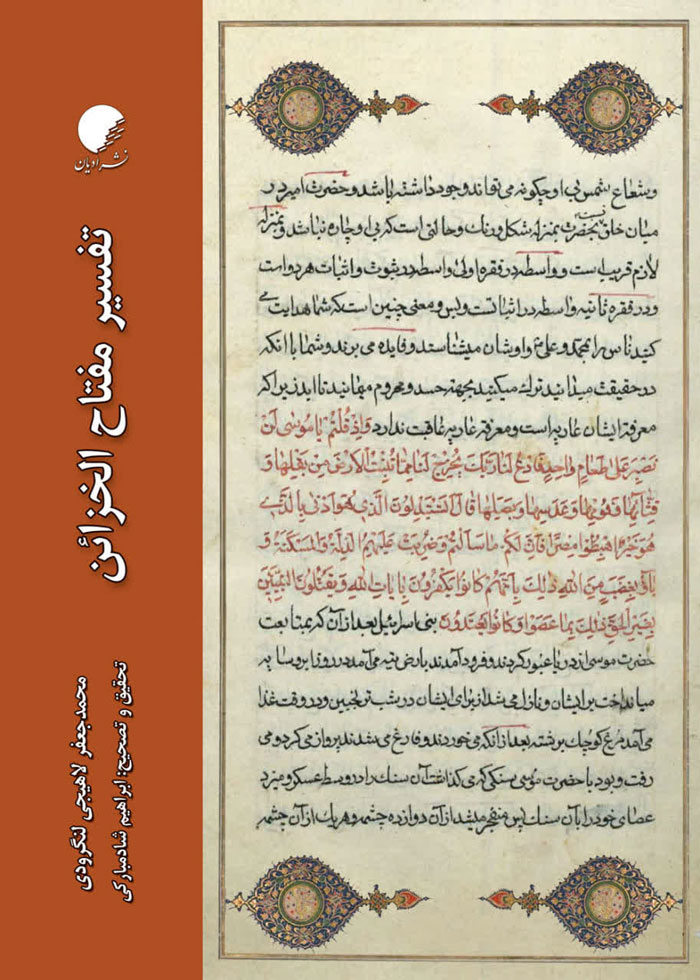 نشر ادیان
تفسیر مفتاح الخزائن
محمدجعفر لاهیجی لنگرودی
تحقیق و تصحیح: ابراهیم شادمبارکی
وشعاع شمس بی او چکونه می تواند وجود داشته باشد و حضرت امیر در
میان خلق بحضرت بمنزله شکل ورنك وحالتی است که بی او چاره نباشد و بمنزله
لازم قریب است و واسطه در فقره اولی واسطه در ثبوت واثبات هر دو است
و در فقره ثانیه واسطه در اثباتست و بس و معنی چنین است که شما هدایت می
کنید ناس را بمحمد و علی و اویشان میشناسند و فایده می برند و شما با انکه
در حقیقت میدانید ترك میکنید بجهة حسد و محروم میمانید تا ابد زیرا که
معرفة ایشان عاریه است و معرفة عاریه عاقبت ندارد وَاِذ قُلتُم یا مُوسی لَن
نَصبِرَ عَلی طَعامٍ واحِدٍ فَادعُ لَنا رَبَّكَ یُخرِج لَنا مِمّا تُنبِتُ الاَرضُ مِن بَقلِها وَ
قِثّائِها وَفُومِها وَعَدَسِها وَبَصَلِها قالَ اَتَستَبدِلُونَ الَّذی هُوَ اَدنی بِالَّذی
هُوَ خَیرٌ اِهبِطُوا مِصرًا فَاِنَّ لَکُم ما سَاَلتُم وَضُرِبَت عَلَیهِمُ الذِلَّةُ وَالمَسکَنَةُ وَ
باؤُ بِغَضَبٍ مِنَ اللهِ ذلِكَ بِاَنَّهُم کانُوا یَکفُرُونَ بِایاتِ اللهِ وَیَقتُلُونَ النَبِیّینَ
بِغَیرِ الحَقِّ ذلِكَ بِما عَصَوا وَکانُوا یَعتَدُونَ بنی اسرائیل بعد از آن که بمتابعت
حضرت موسی از دریا عبور کردند و فرود آمدند بارض تیه می آمد در روز ابر و سایه
میانداخت بر ایشان و نازل می شد از برای ایشان در شب ترنجبین و در وقت غذا
می آمد مرغ کوچك برشته بعد از آنکه می خوردند و فارغ می شدند پرواز می کرد و می
رفت و بود با حضرت موسی سنکی که می کذاشت آن سنك را در وسط عسکر و میزد
عصای خود را بآن سنك پس منفجر میشد از آن دوازده چشمه و هر یك از آن چشمه